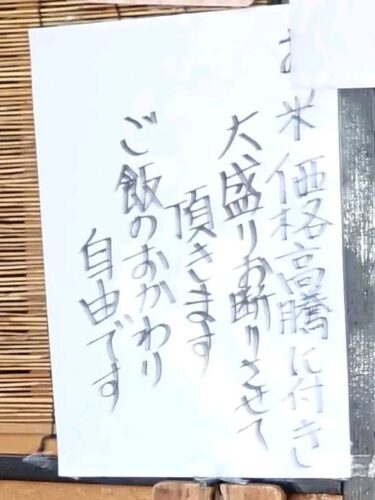 お米価格高騰に付き
大盛りお断りさせて
頂きます
ご飯のおかわり
自由です